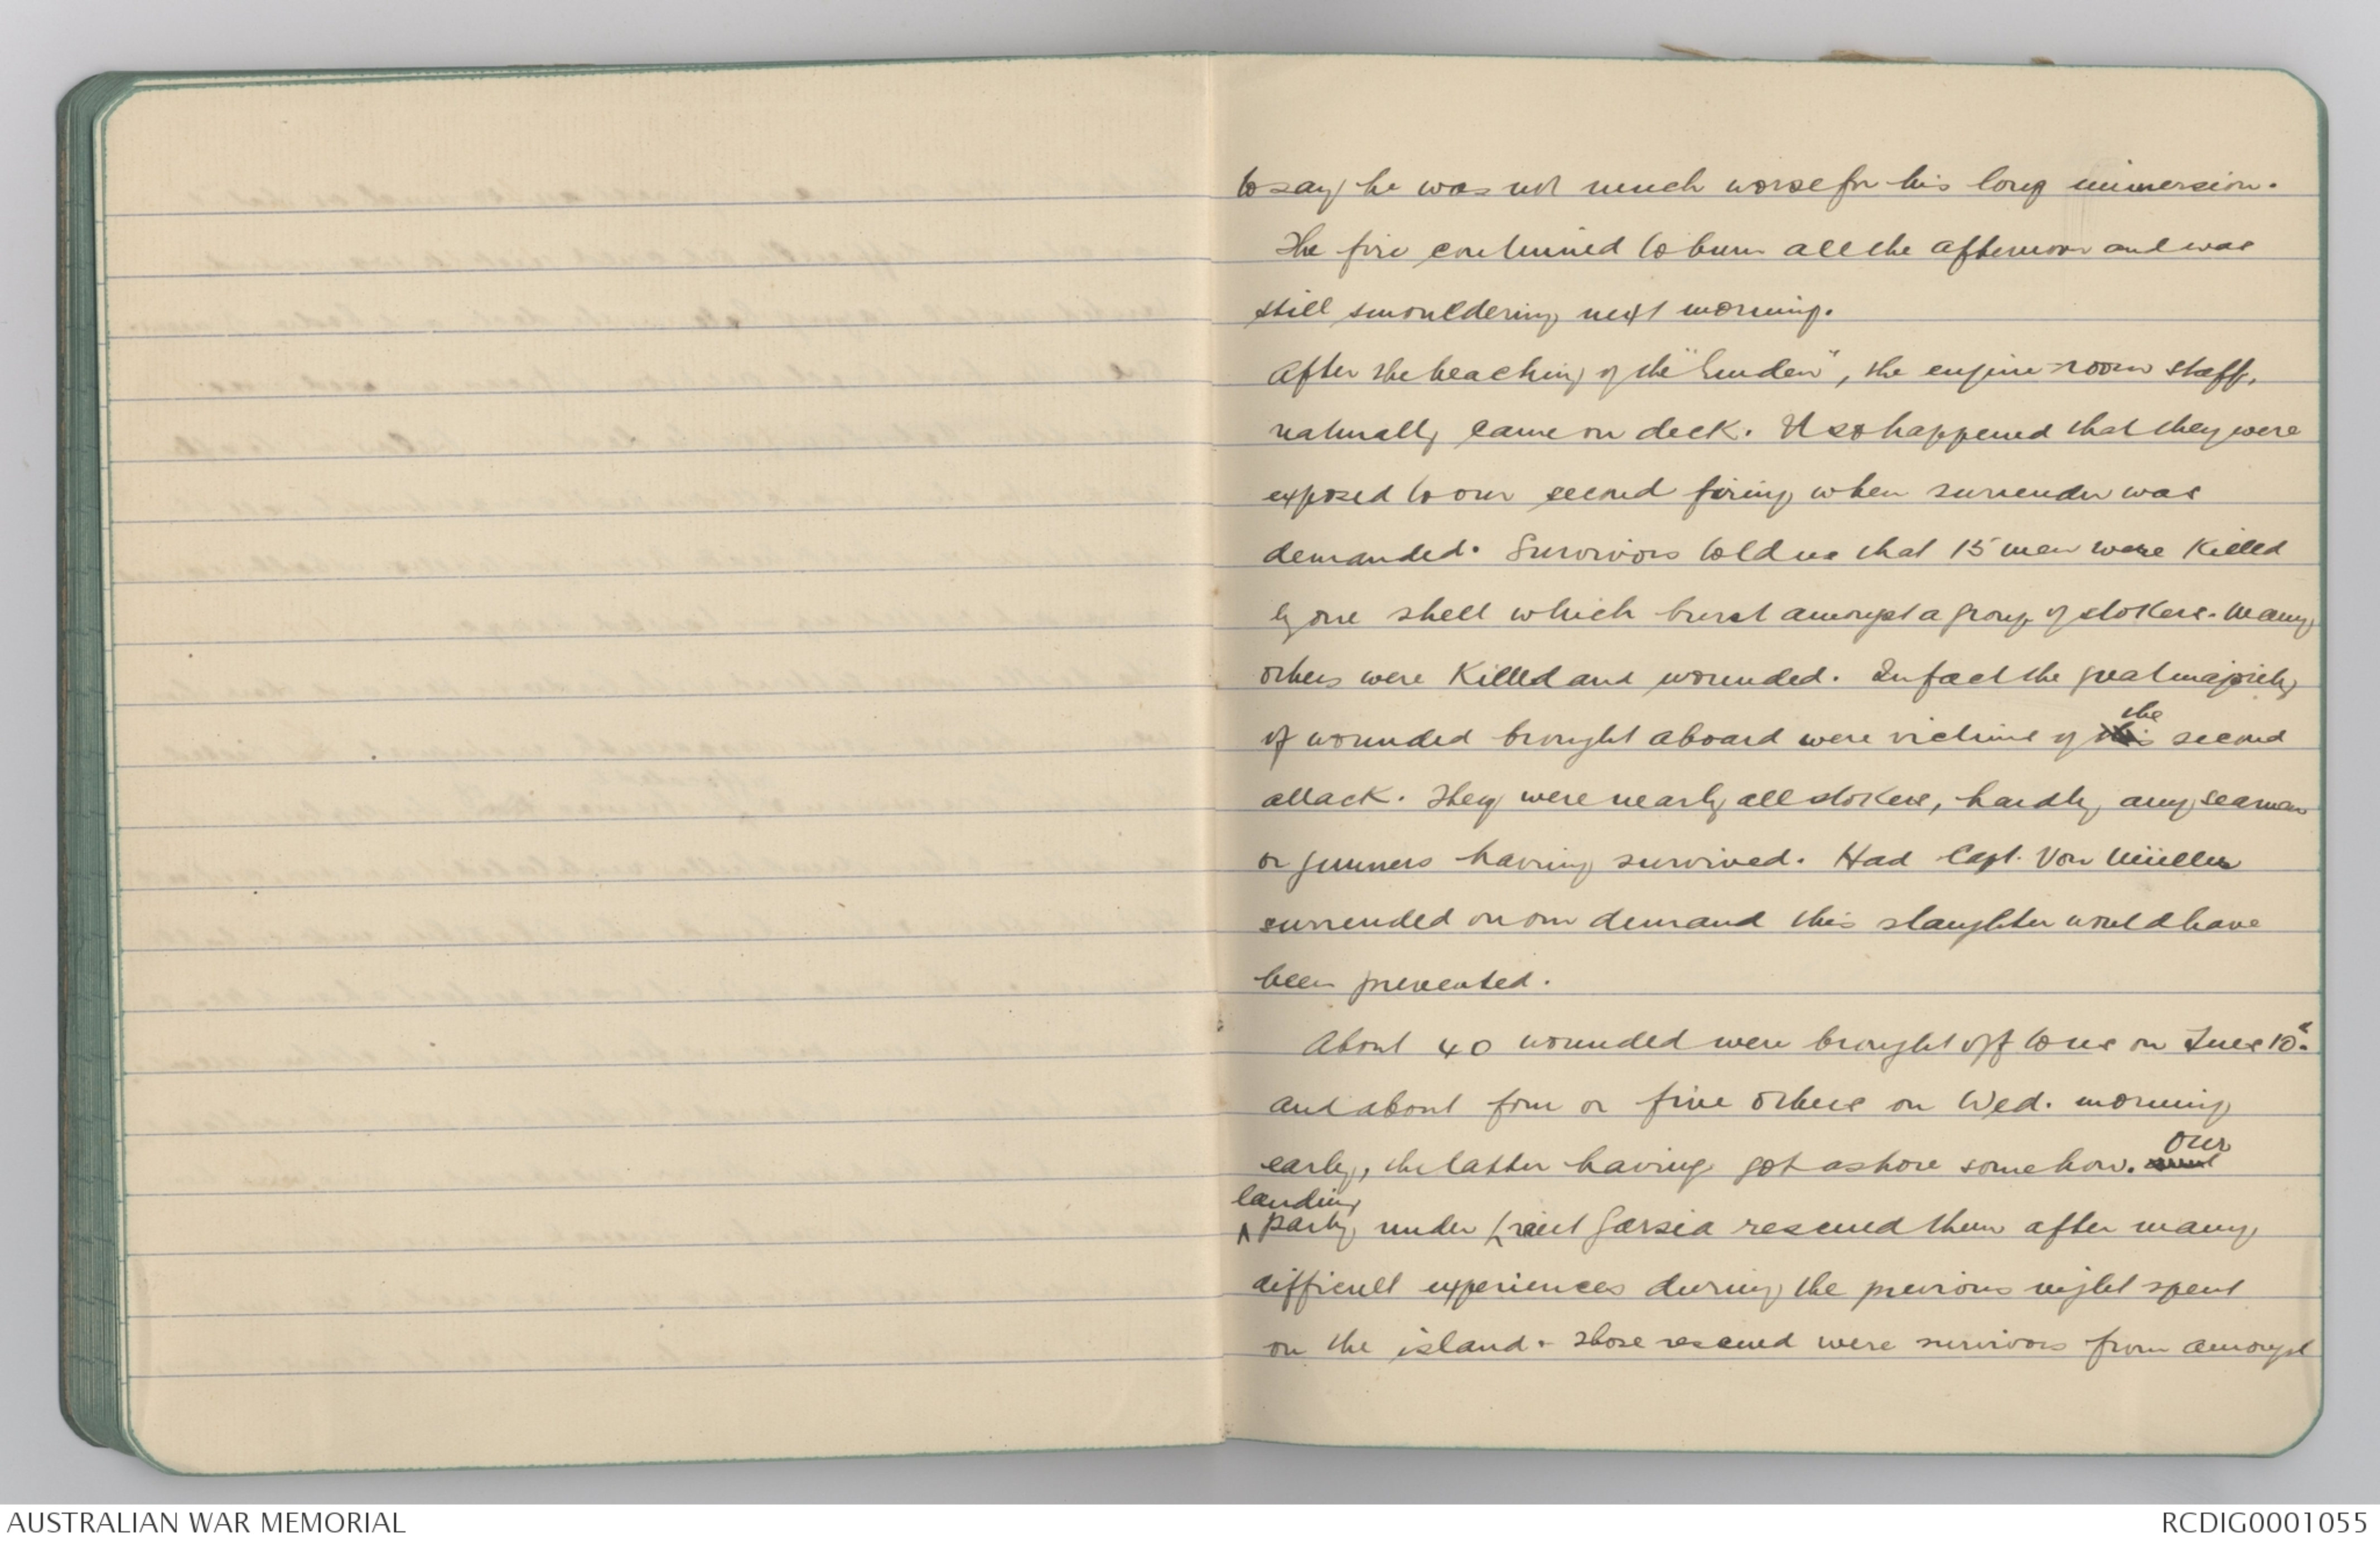 to say, he was not much worse for his long immersion.
The fire continued to burn all the afternoon and was
still smouldering next morning.
After the beaching of the "Emden", the engine-room staff,
naturally came on deck. It so happened that they were
exposed to our second firing, when surrender was
demanded. Survivors told us that 15 men were killed
by one shell which burst amongst a group of stokers. Many
others were killed and wounded. In fact the great majority
of wounded brought aboard were victims of this the second
attack. They were nearly all stokers, hardly any seaman
or gunners having survived. Had Capt. Von Müller
surrended on our demand this slaughter would have
been prevented.
About 40 wounded were brought off to us on Tues 10th
and about four or five others on Wed. morning
early, the latter having got ashore somehow. Our
landing
party, under Lieut Garsia rescued them after many
difficult experiences during the previous night spent
on the island. Those rescued were survivors from amongst
AUSTRALIAN WAR MEMORIAL
RCDIG0001055